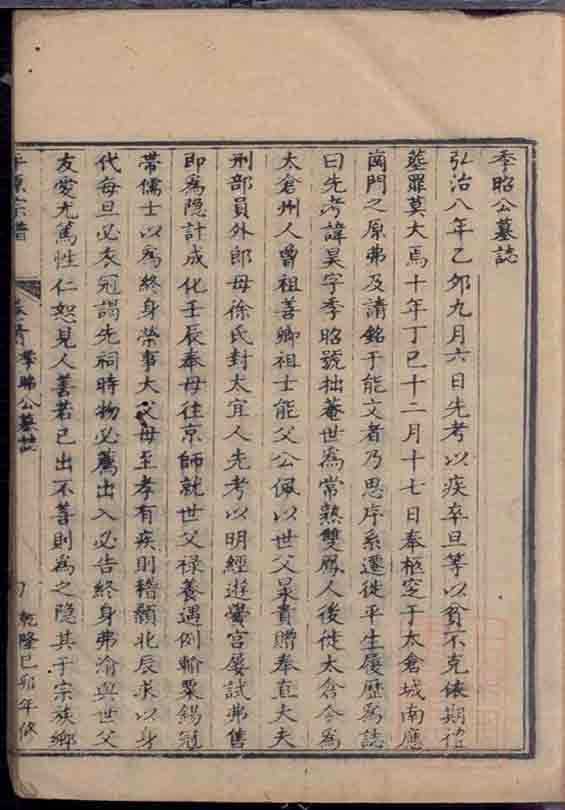 季昭公墓誌
弘治八年乙卯九月六日先考以疾卒旦等以貧不克俟期禮
葬罪莫大焉十年丁巳十二月十七日奉柩窆于太倉城南應
崗門之原弗及請銘于能文者乃思序系遷徙平生履歷為誌
曰先考諱昊字季昭號拙菴世為常熟雙鳳人後徙太倉今為
太倉州人曾祖善卿祖士能父公佩以世父杲貴贈奉直大夫
刑部員外郎母徐氏封太宜人先考以明經遊黌宮屡試弗售
即為隐計成化壬辰奉母往京師就世父祿養遇例輸粟錫冠
帶儒士以為終身榮事大父母至孝有疾則稽顙北辰求以身
代每旦必衣冠謁先祠時物必薦出入必告終身弗渝與世父
友愛尤篤性仁恕見人善若已出不善則為之隐其于宗族鄉
平原宗譜
季昭公墓誌
乾隆己卯年修